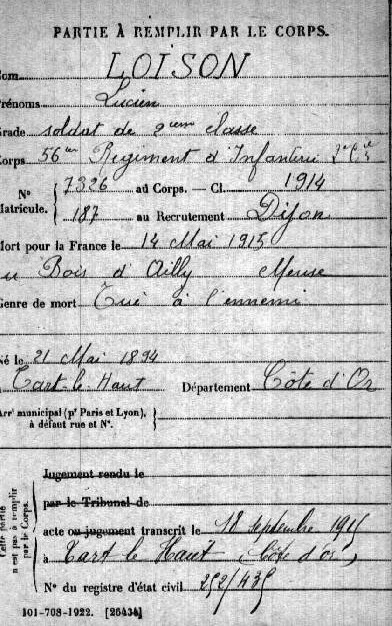 PARTIE À REMPLIR PAR LE CORPS.
Nom LOISON
Prénoms Lucien
Grade soldat de 2ième classe
Corps 56em Régiment d'Infanterie 2e Cie
N° Matricule. { 7326 au Corps. — Cl. 1914
187 au Recrutement Dijon
Mort pour la France le 14 Mai 1915
au Bois d'Ailly Meuse
Genre de mort Tué à l'ennemi
Né le 21 Mai 1894
à Tart le Haut Département Côte d'Or
Arrt municipal (pr Paris et Lyon),
à défaut rue et N°.
Cette partie n'est pas à remplir par le Corps.
Jugement rendu le
par le Tribunal de
acte ou jugement transcrit le 18 septembre 1915
à Tart le Haut (Côte d'or)
N° du registre d'état civil 252/435
101-708-1922. [26434]